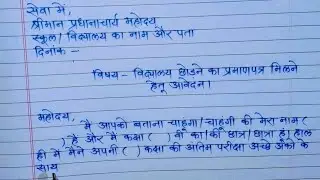 सेवा में,
श्रीमान प्रधानाचार्य महोदय
स्कूल/विद्यालय का नाम और पता
दिनांक -
विषय - विद्यालय छोडने का प्रमाणपत्र मिलने
हेतू आवेदन।
महोदय,
मैं आपको बताना चाहूंगा/चाहूंगी की मेरा नाम (
) है और मैं कक्षा ( ) वी का/की छात्र/छात्रा हूं। हाल
ही में मैंने अपनी ( ) कक्षा की अंतिम परीक्षा अच्छे अंको के
साथ